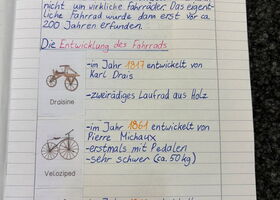 nicht um wirkliche Fahrräder. Das eigent-
liche Fahrrad wurde dann erst vor ca.
200 Jahren erfunden.
Die Entwicklung des Fahrrads
-im Jahr 1817 entwickelt von
Karl Drais
-zweirädiges Laufrad aus Holz
Draisine
-im Jahr 1861 entwickelt von
Pierre Michaux
-erstmals mit Pedalen
-sehr schwer (ca. 50kg)
Veloziped